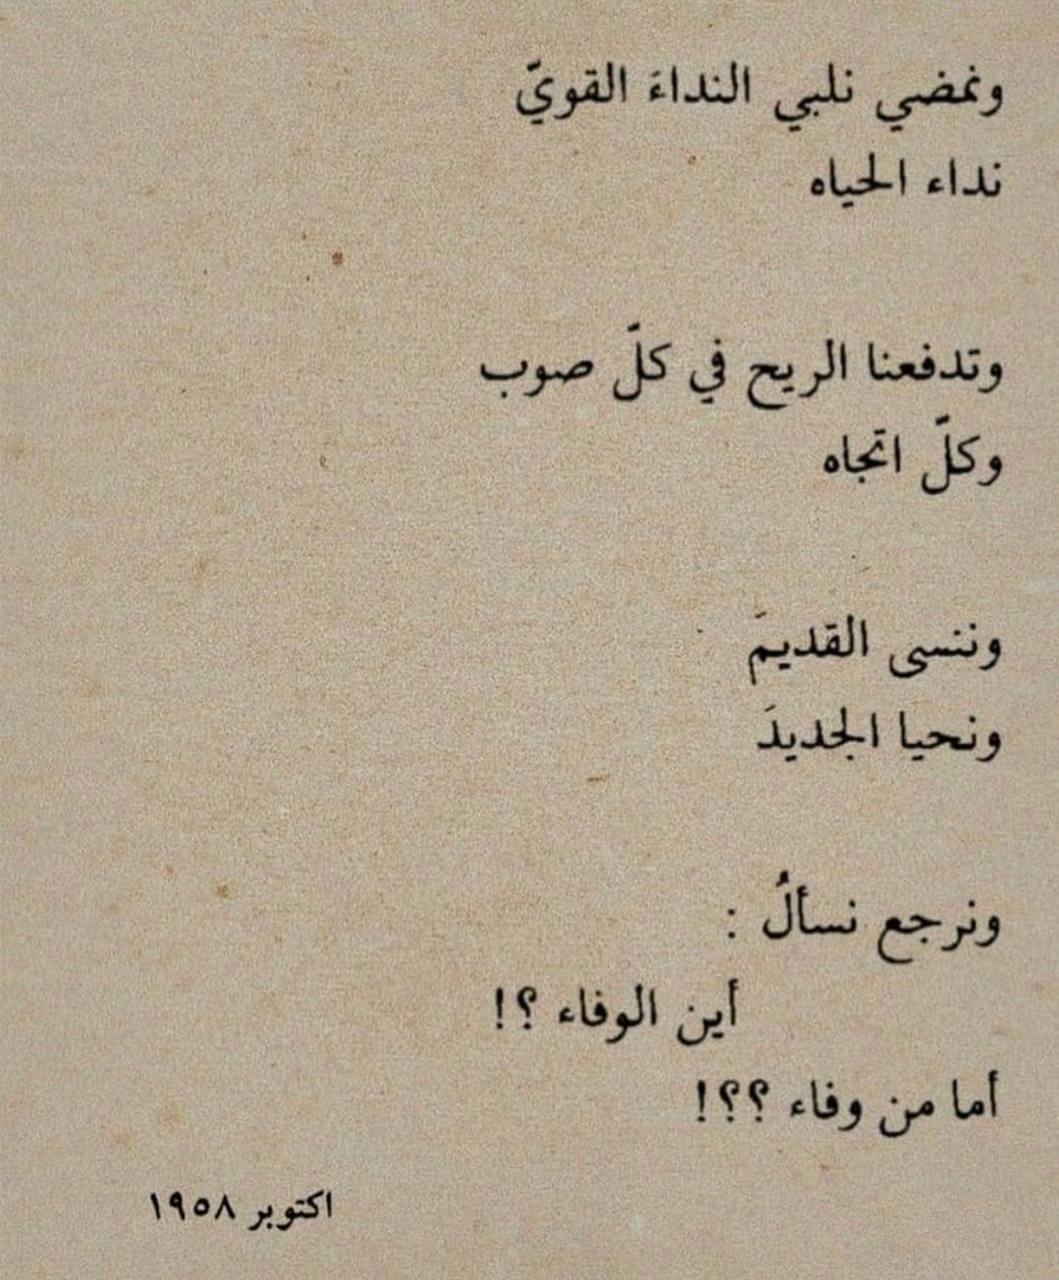 ونمضي نلبي النداءَ القويّ
نداء الحياه
وتدفعنا الريح في كلّ صوب
وكلّ اتجاه
وننسى القديمَ
ونحيا الجديدَ
ونرجع نسألُ :
أين الوفاء ؟!
أما من وفاء ؟؟!
اكتوبر ١٩٥٨